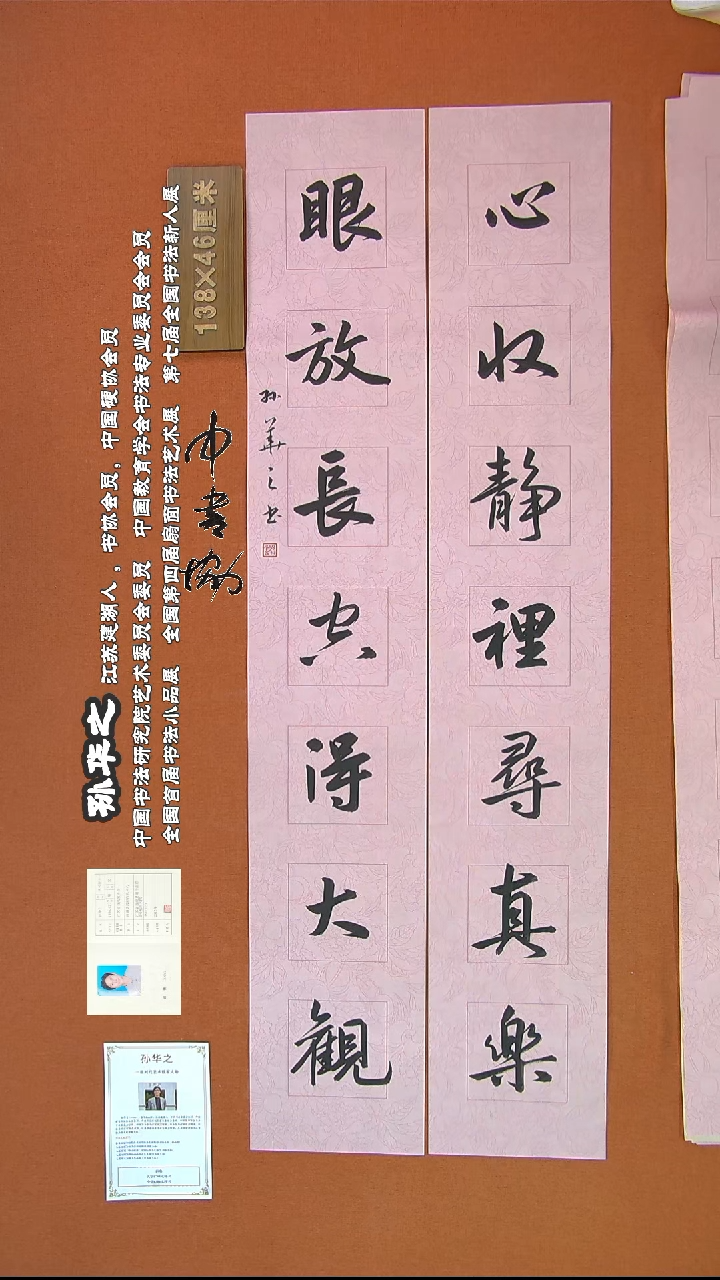 心收静裡尋真樂
眼放長空得大觀
孙華之书
138×46厘米
中书协
孙华之
江苏建湖人，书协会员，中国硬协会员
中国书法研究院艺术委员会委员 中国教育学会书法专业委员会会员
全国首届书法小品展 全国第四届扇面书法艺术展 第七届全国书法新人展
孙华之